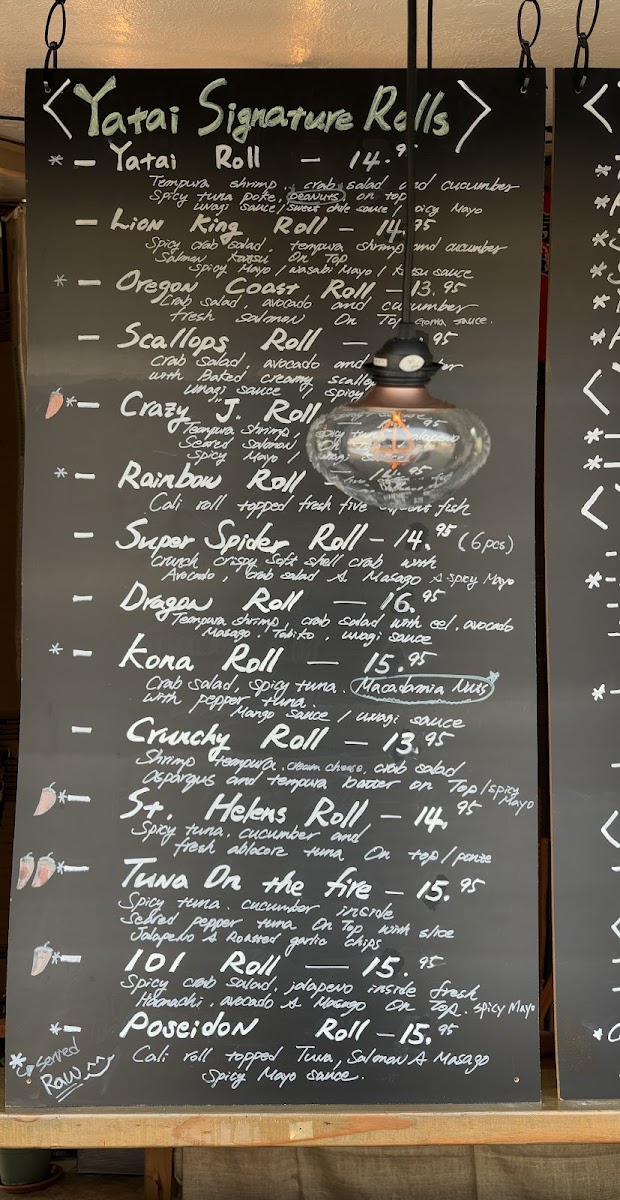 < Yatai Signature Rolls >
* — Yatai Roll — 14.95
Tempura shrimp, crab salad and cucumber
Spicy tuna poke, peanuts on top
unagi sauce / sweet chile sauce / spicy Mayo
— Lion King Roll — 14.95
Spicy crab salad, tempura shrimp and cucumber
Salmon Katsu On Top
Spicy Mayo / Wasabi Mayo / Katsu sauce
* — Oregon Coast Roll — 13.95
Crab salad, avocado and cucumber
fresh salmon On Top Goma sauce.
— Scallops Roll — .95
Crab salad, avocado and
with Baked creamy
unagi sauce spicy
* — Crazy "J." Roll
Tempura Shrimp, spicy tuna Jalapeno
Seared Salmon
Spicy Mayo /
* — Rainbow Roll 14.95
Cali roll topped fresh five fish
— Super Spider Roll — 14.95 (6pcs)
Crunch crispy Soft shell crab with
Avocado, Crab salad & Masago & spicy Mayo
— Dragon Roll — 16.95
Tempura shrimp, crab salad with eel, avocado
Masago, Tobiko, unagi sauce
* — Kona Roll — 15.95
Crab Salad, spicy tuna. Macadamia Nuts*
with pepper tuna.
/ Mango sauce / unagi sauce
— Crunchy Roll — 13.95
Shrimp tempura, cream cheese, crab salad
aspargus and tempura batter on Top / spicy
Mayo
* — St. Helens Roll — 14.95
Spicy tuna, cucumber and
fresh ablacore tuna On top / ponze
* — Tuna On the fire — 15.95
Spicy tuna, cucumber inside
Seared pepper tuna On Top with slice
Jalapeño & Roasted garlic chips
* — 101 Roll — 15.95
Spicy crab salad, jalapeno inside fresh
Hamachi, avocado & Masago On Top. spicy Mayo
* — Poseidon Roll — 15.95
Cali roll topped Tuna, Salmon & Masago
Spicy Mayo sauce.
* Served
Raw